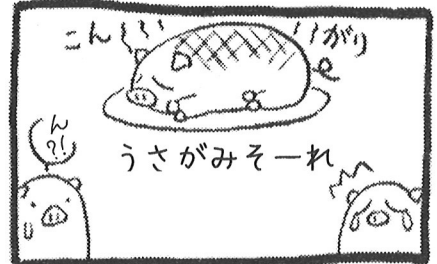 こんがり
ん?!
うさがみそーれ